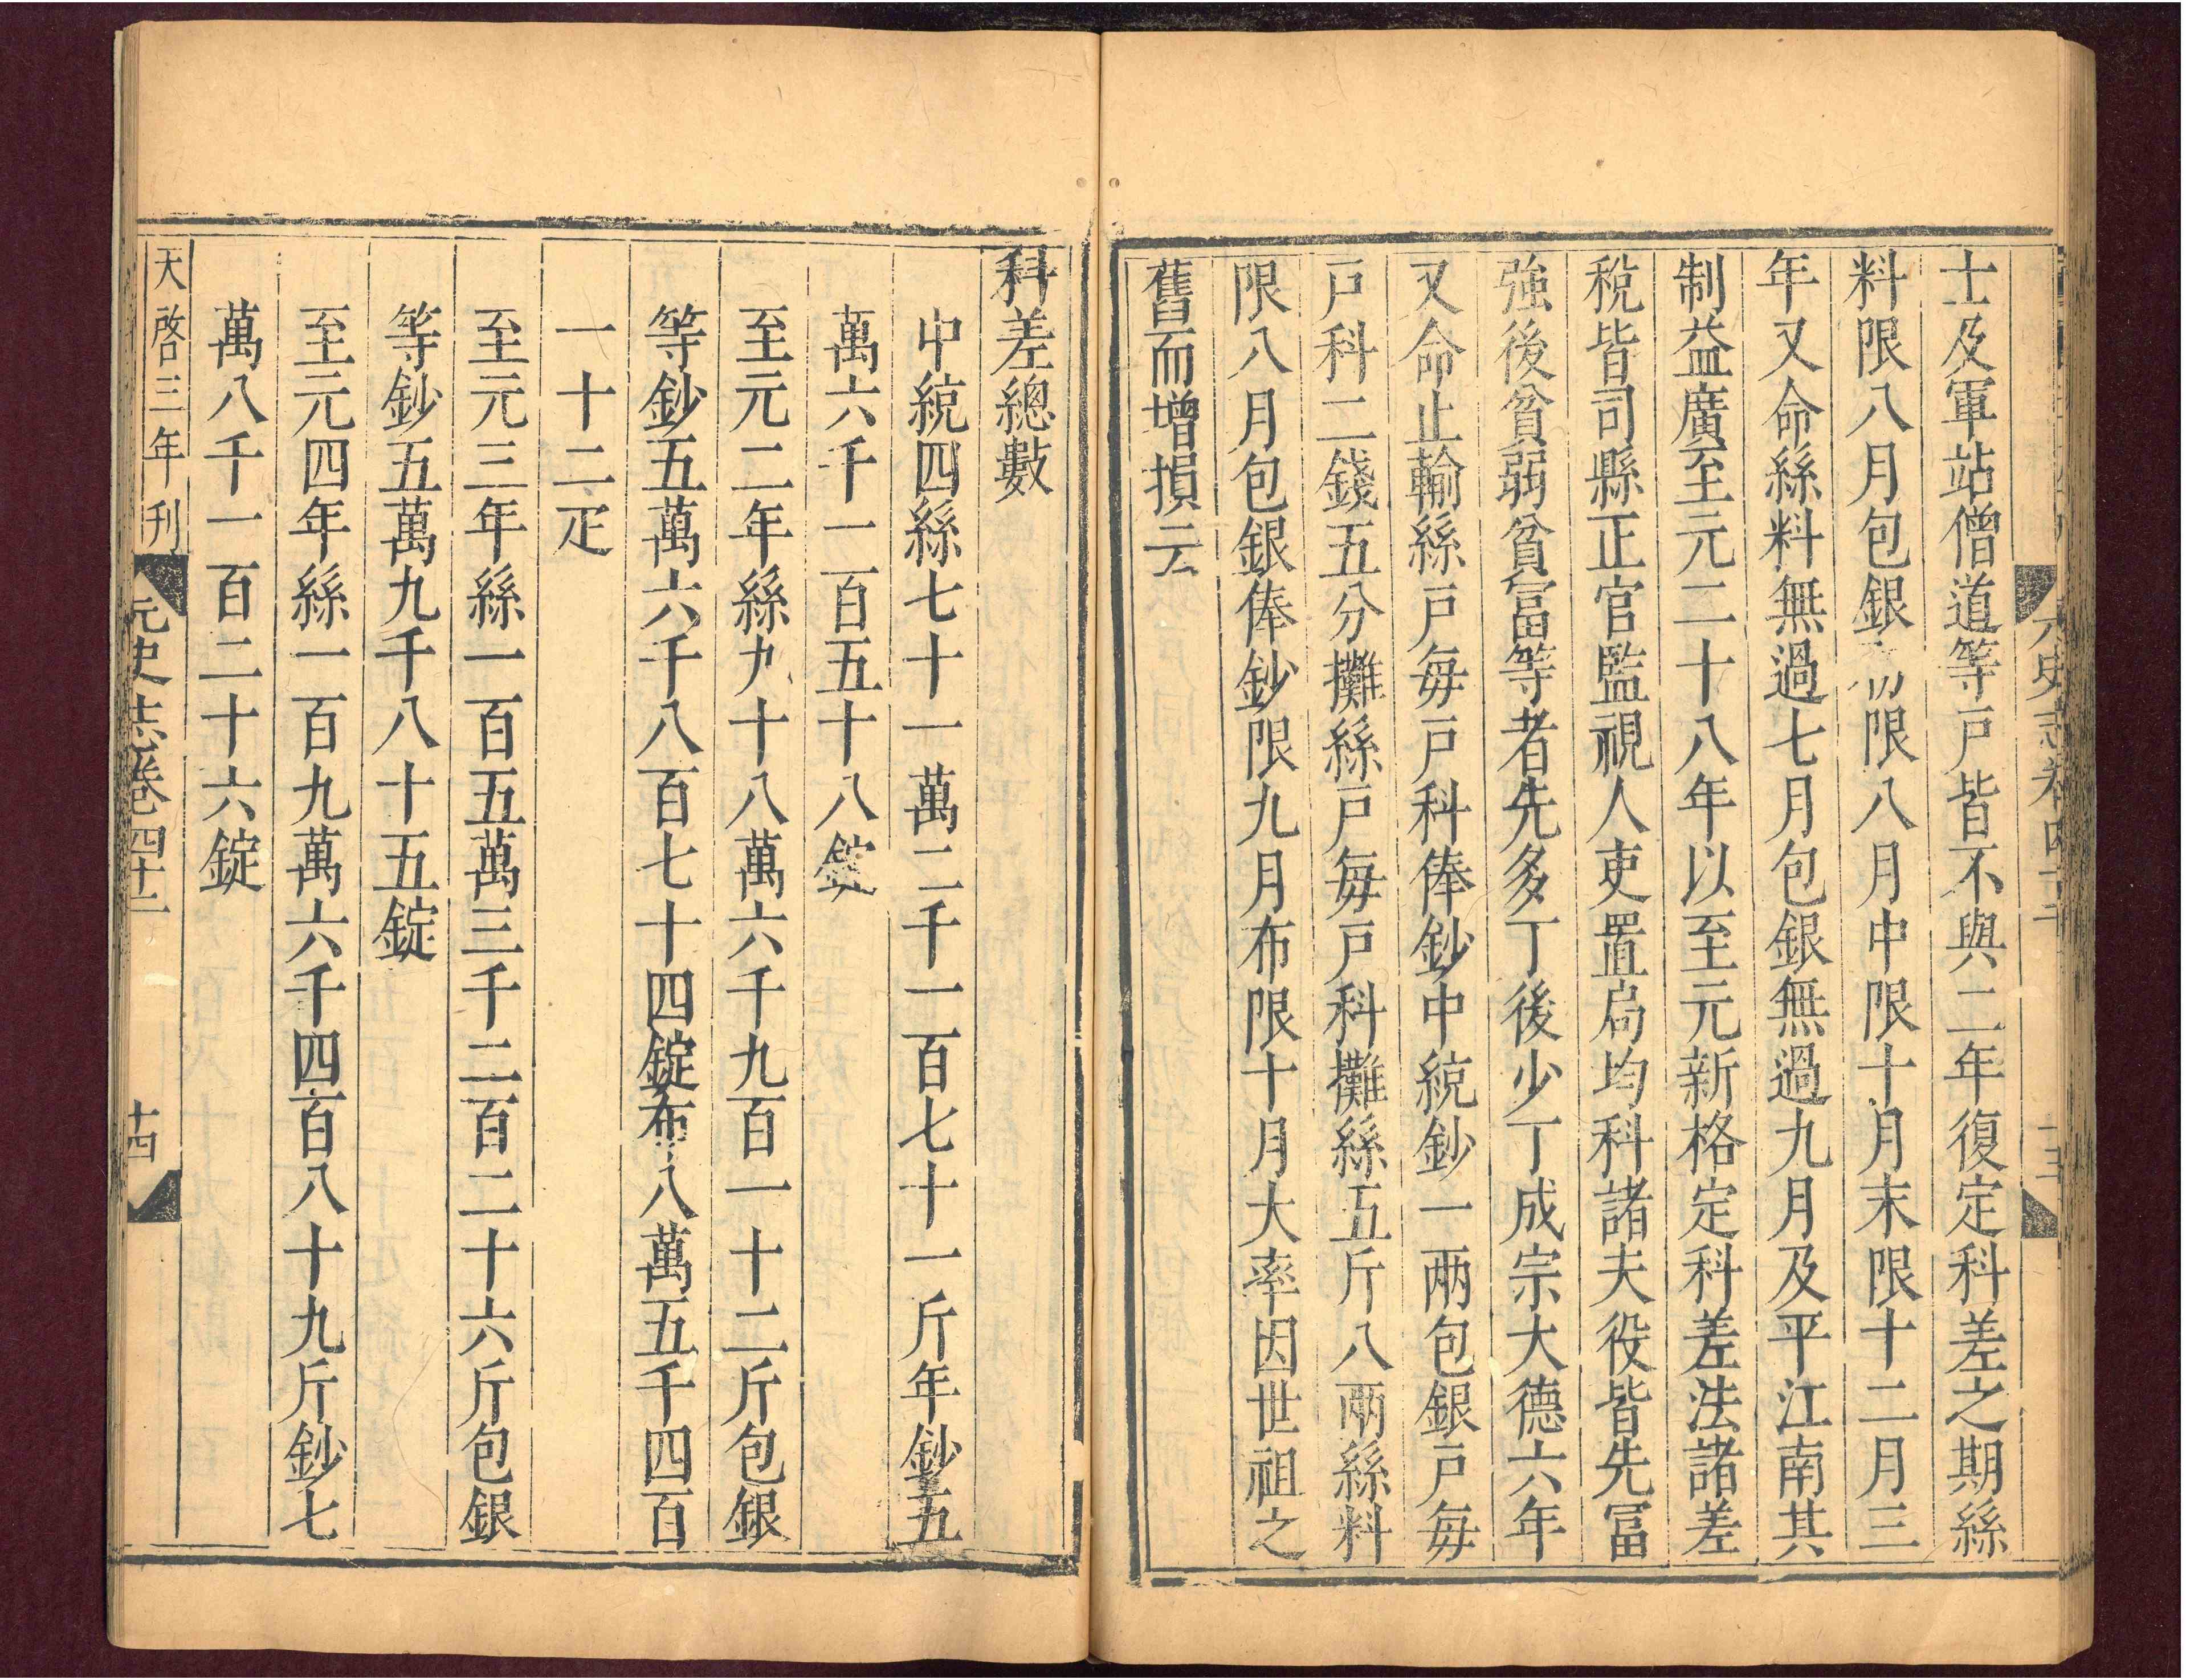 士及軍站僧道等戸皆不與二年復定科差之期絲
料限八月包銀限八月中限十月末限十二月三
年又命絲料無過七月包銀無過九月及平江南其
制益廣至元二十八年以至元新格定科差法諸差
稅皆司縣正官監視人吏置局均科諸夫役皆先冨
強後貧弱貧冨等者先多丁後少丁成宗大德六年
又命止輸絲戸每戸科俸鈔中統鈔一兩包銀戸每
戸科二錢五分攤絲戸每戸科攤絲五斤八兩絲料
限八月包銀俸鈔限九月布限十月大率因世祖之
舊而增損云
科差總數
中統四絲七十一萬二千一百七十一斤年鈔五
萬六千一百五十八錠
至元二年絲九十八萬六千九百一十二斤包銀
等鈔五萬六千八百七十四錠布八萬五千四百
一十二疋
至元三年絲一百五萬三千二百二十六斤包銀
等鈔五萬九千八十五錠
至元四年絲一百九萬六千四百八十九斤鈔七
萬八千一百二十六錠
天啓三年刊
元史志卷四十二
十四